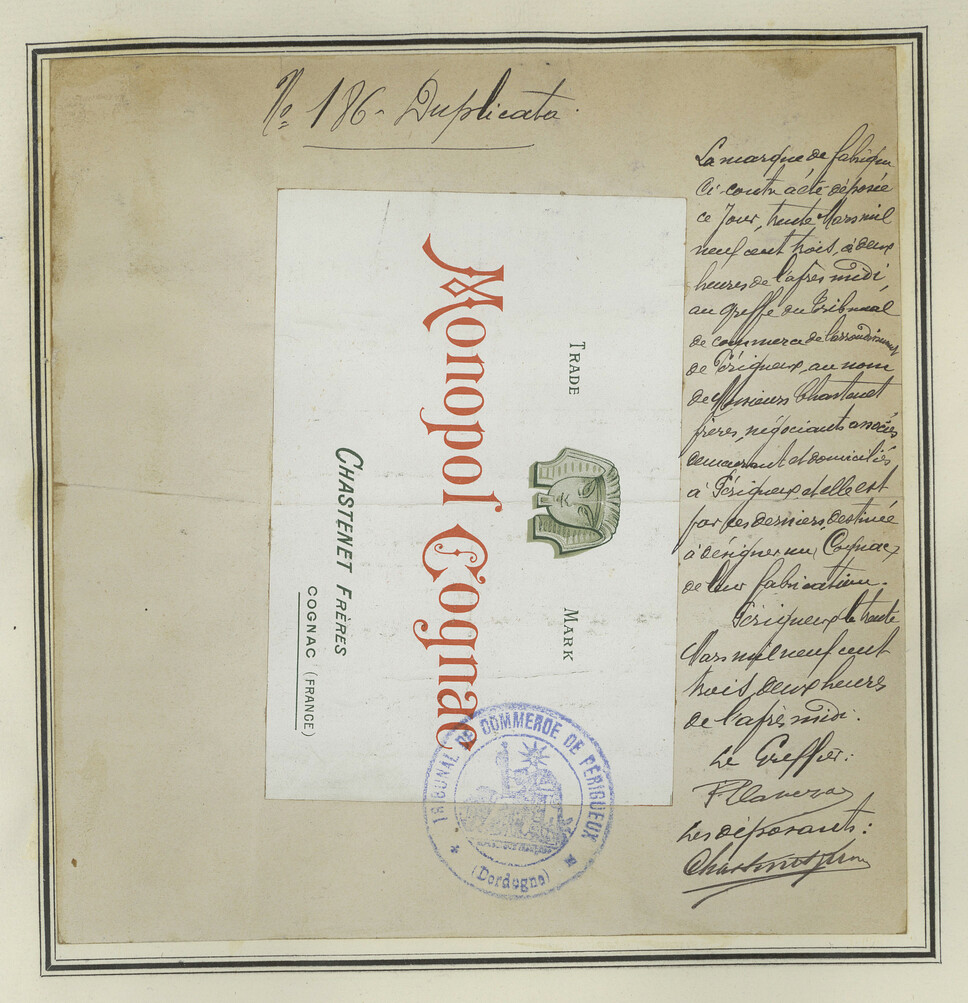 No 186. Duplicata.
TRADE MARK
Monopol Cognac
CHASTENET FRÈRES
COGNAC (FRANCE)
TRIBUNAL DE COMMERCE DE PÉRIGUEUX
(Dordogne)
La marque de fabrique
Ci-contre a été déposée
ce Jour, trente Mars mil
neuf cent trois, à deux
heures de l'après midi,
au greffe du Tribunal
de commerce de l'arrondissement
de Périgueux, au nom
de Messieurs Chastenet
frères, négociants associés
demeurant et domiciliés
à Périgueux et elle est
par ces derniers, destinée
à désigner un Cognac
de leur fabrication.
Périgueux le trente
Mars mil neuf cent
trois, deux heures
de l'après midi.
Le Greffier:
Les déposants:
Chastenet frères